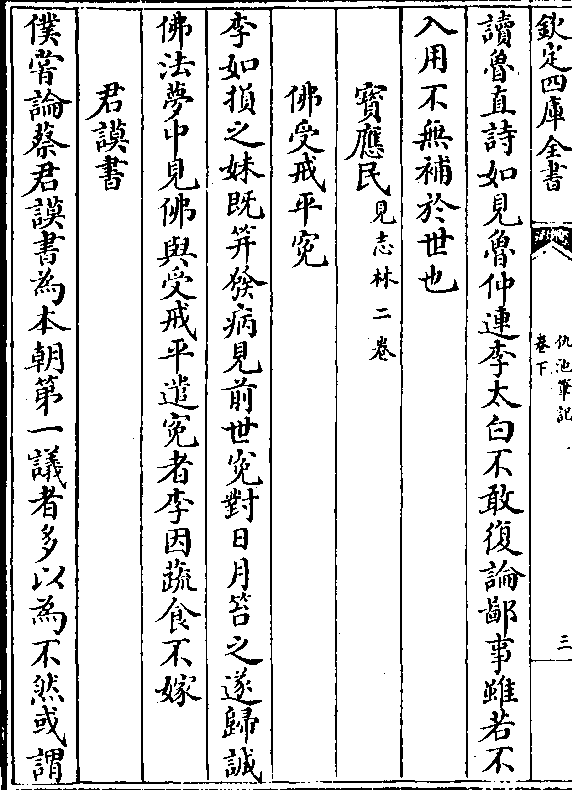 欽定四庫全書
仇池筆記
卷下
三
讀魯直詩如見魯仲連李太白不敢復論鄙事雖若不
入用不無補於世也
寳應民見志林二卷
佛受戒平寃
李如損之妹既笄發病見前世寃對日月笞之遂歸誠
佛法夢中見佛與受戒平遣寃者李因蔬食不嫁
君謨書
僕嘗論蔡君謨書為本朝第一議者多以為不然或謂